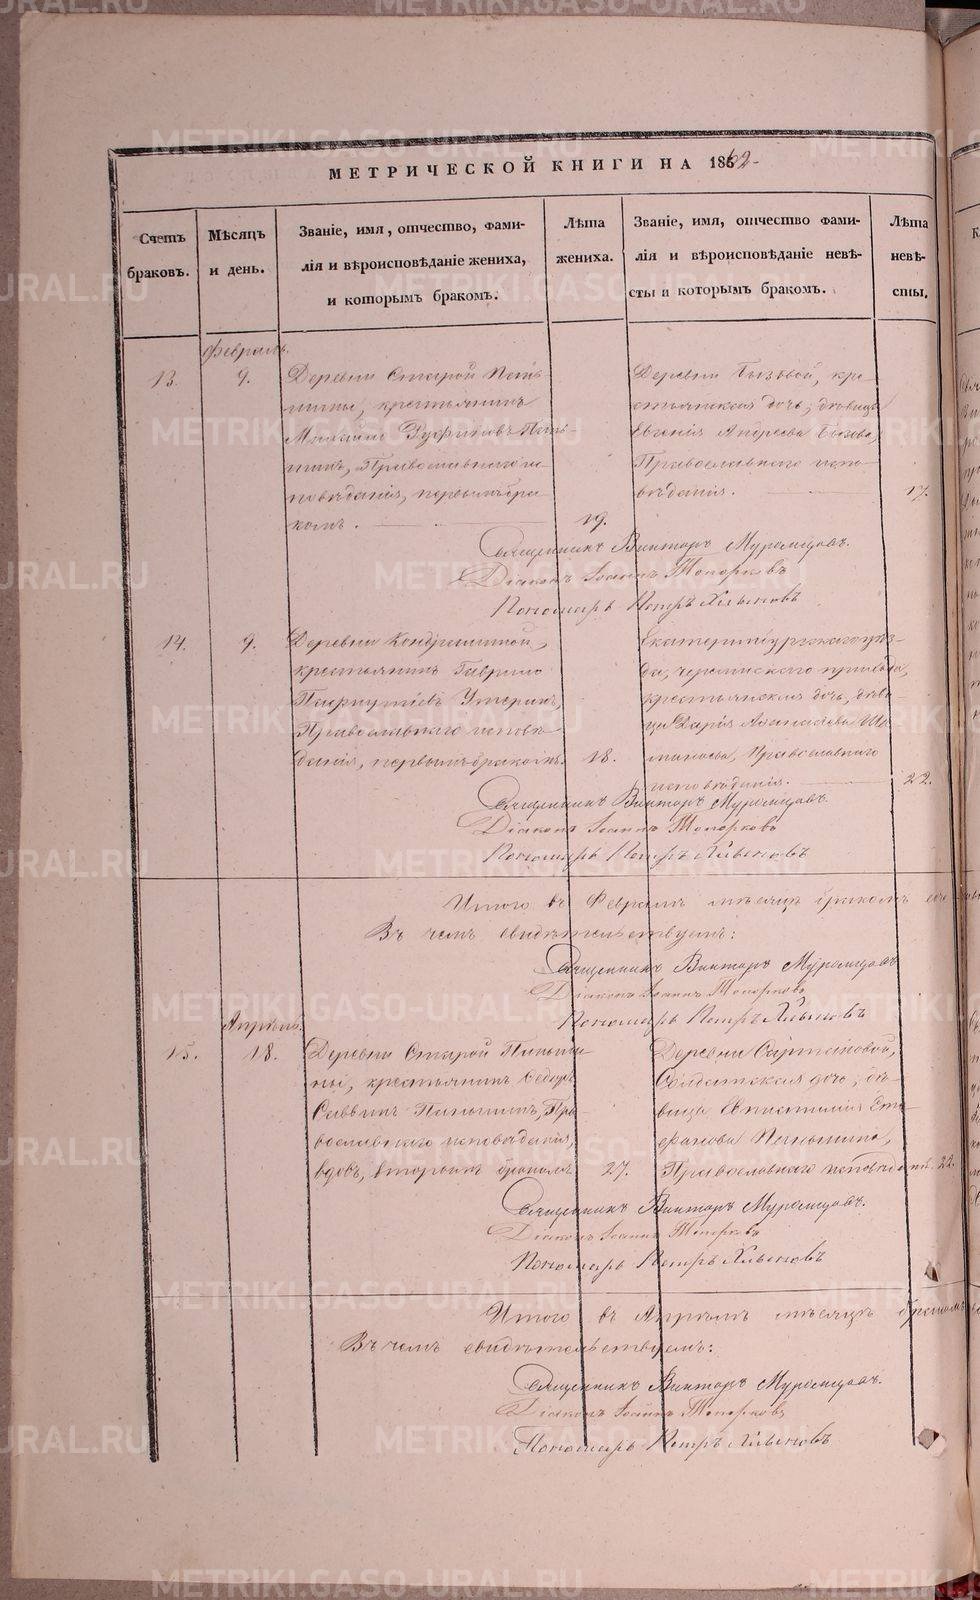 МЕТРИЧЕСКОЙ КНИГИ НА 1862
Счетъ браковъ.
Мѣсяцъ и день.
Званіе, имя, отчество, фами-
лія и вѣроисповѣданіе жениха,
и которымъ бракомъ.
Лѣта
жениха.
Званіе, имя, отчество фами-
лія и вѣроисповѣданіе невѣ-
сты и которымъ бракомъ.
Лѣта
невѣ-
сты.
Февраль.
13. 9.
Деревни Старой
крестьянинъ
Православнаго ис-
повѣданія, первымъ бра-
комъ. 19.
Деревни Бызовой, кре-
стьянская дочь, дѣвица
Евгенія Андреева Бызова,
Православнаго испо-
вѣданія. 17.
Священникъ Викторъ Муромцовъ.
Діаконъ Іоаннъ Топорковъ
Пономарь Петръ Хлыновъ
14. 9.
Деревни
крестьянинъ Гаврило
Православнаго исповѣ-
данія, первымъ бракомъ. 18.
Екатеринбургскаго уѣз-
да,
крестьянская дочь, дѣви-
ца Дарія
Православнаго
исповѣданія. 22.
Священникъ Викторъ Муромцовъ.
Діаконъ Іоаннъ Топорковъ
Пономарь Петръ Хлыновъ
Итого въ Февралѣ мѣсяцѣ бракомъ
Въ чемъ свидѣтельствуемъ:
Священникъ Викторъ Муромцовъ
Діаконъ Іоаннъ Топорковъ
Пономарь Петръ Хлыновъ
Апрѣль.
15. 18.
Деревни Старой
крестьянинъ Федоръ
Саввинъ Пра-
вославнаго исповѣданія,
вдовъ, вторымъ бракомъ 27.
Деревни
Солдатская дочь, дѣ-
вица Сте-
фанова Паньшина,
Православнаго исповѣданія. 22.
Священникъ Викторъ Муромцовъ.
Діаконъ Іоаннъ Топорковъ
Пономарь Петръ Хлыновъ
Итого въ Апрѣлѣ мѣсяцѣ бракомъ
Въ чемъ свидѣтельствуемъ:
Священникъ Викторъ Муромцовъ.
Діаконъ Іоаннъ Топорковъ
Пономарь Петръ Хлыновъ
METRIKI.GASO-URAL.RU